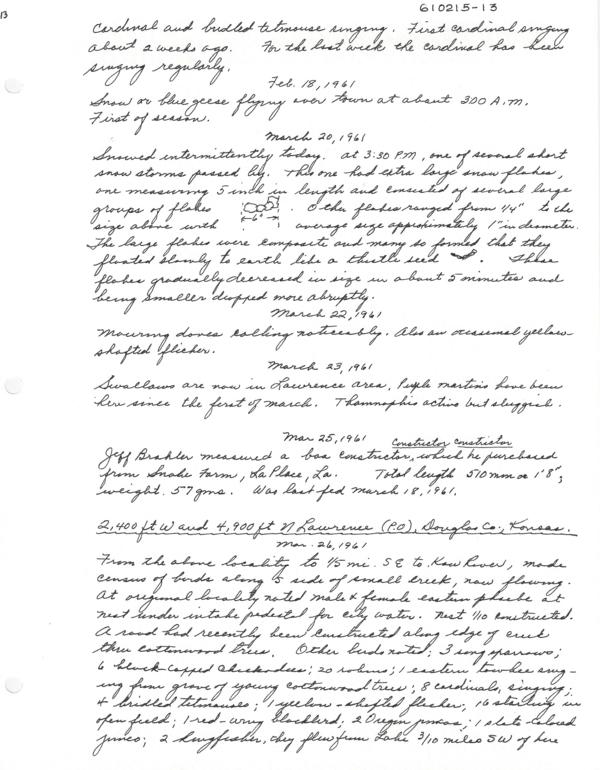 610215-13
13
Cardinal and bridled titmouse singing. First cardinal singing
about 2 weeks ago. For the last week the cardinal has been
singing regularly.
Feb. 18, 1961
Snow or blue geese flying over town at about 300 A.M.
First of season.
March 20, 1961
Snowed intermittently today. At 3:30 PM, one of several short
snow storms passed by. This one had extra large snow flakes,
one measuring 5 inch in length and consisted of several large
groups of flakes Other flakes ranged from 1/4" to the
6"
size above with average size approximately 1" in diameter.
The large flakes were composite and many so formed that they
floated slowly to earth like a thistle seed. These
flakes gradually decreased in size in about 5 minutes and
being smaller dropped more abruptly.
March 22, 1961
Mourning doves calling noticeably. Also an occasional yellow-
shafted flicker.
March 23, 1961
Swallows are now in Lawrence area, Purple martins have been
here since the first of march. Thamnophis active but sluggish.
Mar 25, 1961 Constrictor constrictor
Jeff Brahler measured a boa constrictor, which he purchased
from Snake Farm, La Place, La. Total length 510 mm or 1'8",
weight. 57 gms. Was last fed march 18, 1961.
2,400 ft W and 4,900 ft N Lawrence (P.O), Douglas Co., Kansas.
Mar. 26, 1961
From the above locality to 1/5 mi. SE to Kaw River, made
census of birds along S side of small creek, now flowing.
At original locality noted male & female eastern phoebe at
nest under intake pedestal for city water. Nest 1/10 constructed.
A road had recently been constructed along edge of creek
thru cottonwood trees. Other birds noted; 3 song sparrows;
6 black-capped chickadees; 20 robins; 1 eastern towhee sing-
ing from grove of young cottonwood trees; 8 cardinals, singing;
4 bridled titmouses; 1 yellow-shafted flicker; 16 starling in
open field; 1 red-wing blackbird; 2 Oregon juncos; 1 slate colored
junco; 2 kingfisher, they flew from Lake 3/10 miles SW of here